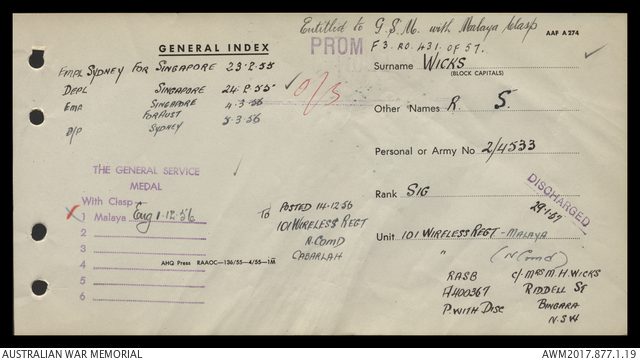 Entitled to G.S.M. with Malaya Clasp
PROM F3.RO.431.OF 57.
AAF A 274
GENERAL INDEX
Surname WICKS
(BLOCK CAPITALS)
EMPL SYDNEY FOR SINGAPORE 23.2.55
DEPL SINGAPORE 24.2.55
EMP SINGAPORE 4.3.56
FOR AUST
D/P SYDNEY 5.3.56
O/S
Other Names R. S.
Personal or Army No 2/4533
Rank SIG
DISCHARGED
29.1.57
Unit 101 WIRELESS REGT - MALAYA
" (N Comd)
THE GENERAL SERVICE
MEDAL
With Clasp
1 Malaya 1.12.56
2
3
4
5
6
TO POSTED 14.12.56
101 WIRELESS REGT
N. COMD
CABARLAH
AHQ Press RAAOC—136/55—4/55—1M
RASB
A400367
P. WITH DISC
c/- MRS M.H. WICKS
RIDDELL ST
BINGARA
N.S.W
AUSTRALIAN WAR MEMORIAL
AWM2017.877.1.19